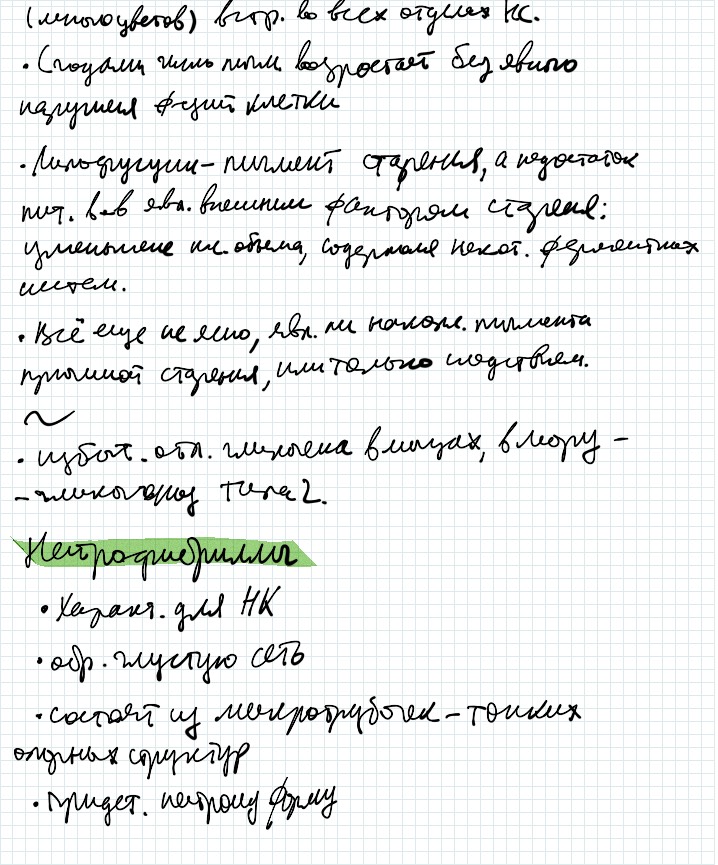 (многоцветов) встр. во всех отделах НС.
• С годами лишь пигм. возростает без явного
нарушения ф-ций клетки
• Липофусцин - пигмент старения, а недостаток
пит. в-в явл. внешним фактором старения:
уменьшение кл. объема, содержания некот. ферментных
систем.
• Всё еще не ясно, явл. ли накопл. пигмента
причиной старения, или только следствием.
~
• избыт. отл. гликогена в мышцах, в мозгу -
- гликогеноз типа 2.
Нейрофибриллы
• Характ. для НК
• обр. густую сеть
• состоят из микротрубочек - тонких
опорных структур
• придет. нейрону форму